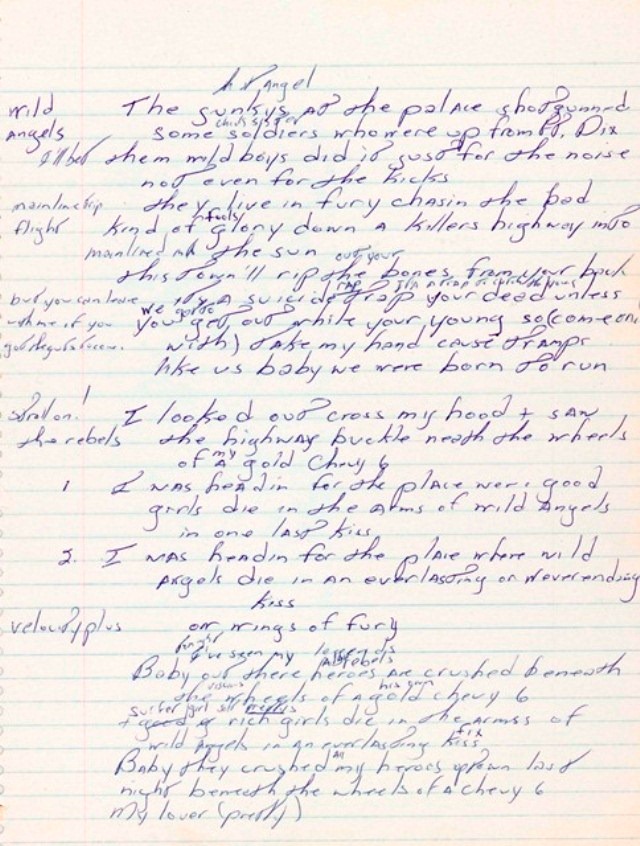 Angel
wild The junkys at the palace shotgunned
angels some soldiers who were up from Ft. Dix
I'll bet them wild boys did it just for the noise
not even for the kicks
mainline trip they live in fury chasin the bad
fools
flight kind of glory down a killers highway into
mainlined the sun
out your
this town'll rip the bones from your back
trap
but you can leave it's a suicide trap your dead unless
we gotta
with me if you you get out while your young so (come on
with) take my hand cause tramps
like us baby we were born to run
stroll on! I looked out cross my hood + saw
the rebels the highway buckle neath the wheels
my
of a gold Chevy 6
1 I was headin for the place were good
girls die in the arms of wild Angels
in one last kiss
2. I was headin for the place where wild
angels die in an everlasting or neverending
kiss
velocity plus on wings of fury
I've seen my
rebels
Baby out there heroes are crushed beneath
his own
the wheels of a gold chevy 6
surfer girl
+ good rich girls die in the armss of
fix
wild angels in an everlasting kiss
Baby they crushed my heroes down last
night beneath the wheels of a chevy 6
my lover (pretty)